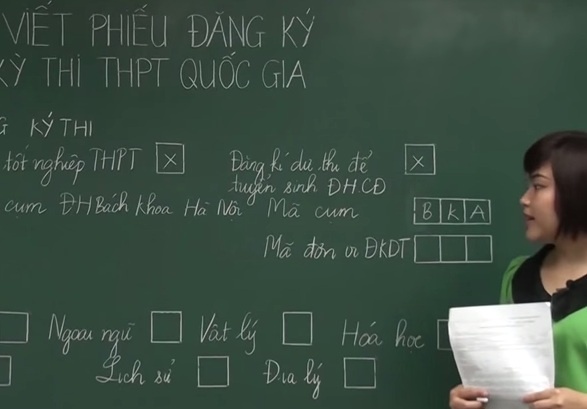 VIẾT PHIẾU ĐĂNG KÝ
KỲ THI THPT QUỐC GIA
G KÝ THI
tốt nghiệp THPT X Đăng kí dự thi để X
tuyển sinh ĐH,CĐ
cụm ĐH Bách khoa Hà Nội Mã cụm B K A
Mã đơn vị ĐKDT
Ngoại ngữ Vật lý Hóa học
Lịch sử Địa lý